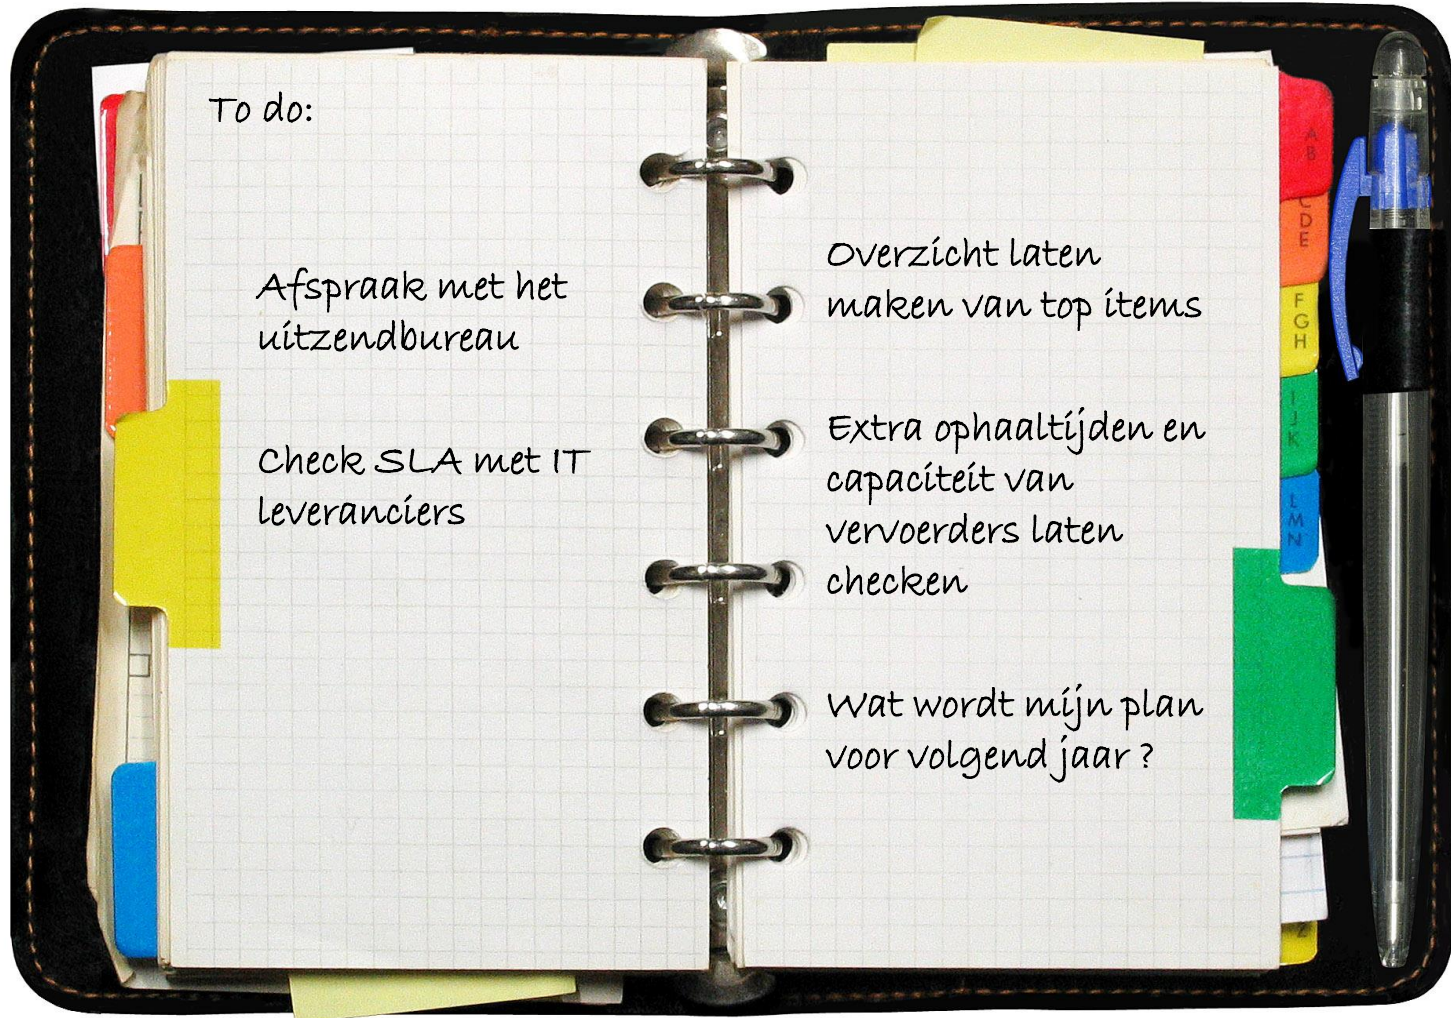 To do:
Afspraak met het
uitzendbureau
Check SLA met IT
leveranciers
Overzicht laten
maken van top items
Extra ophaaltijden en
capaciteit van
vervoerders laten
checken
Wat wordt mijn plan
voor volgend jaar ?
A
B
C
D
E
F
G
H
I
J
K
L
M
N
Z